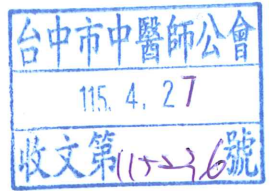 台中市中醫師公會
115. 4. 27
收文第115236號